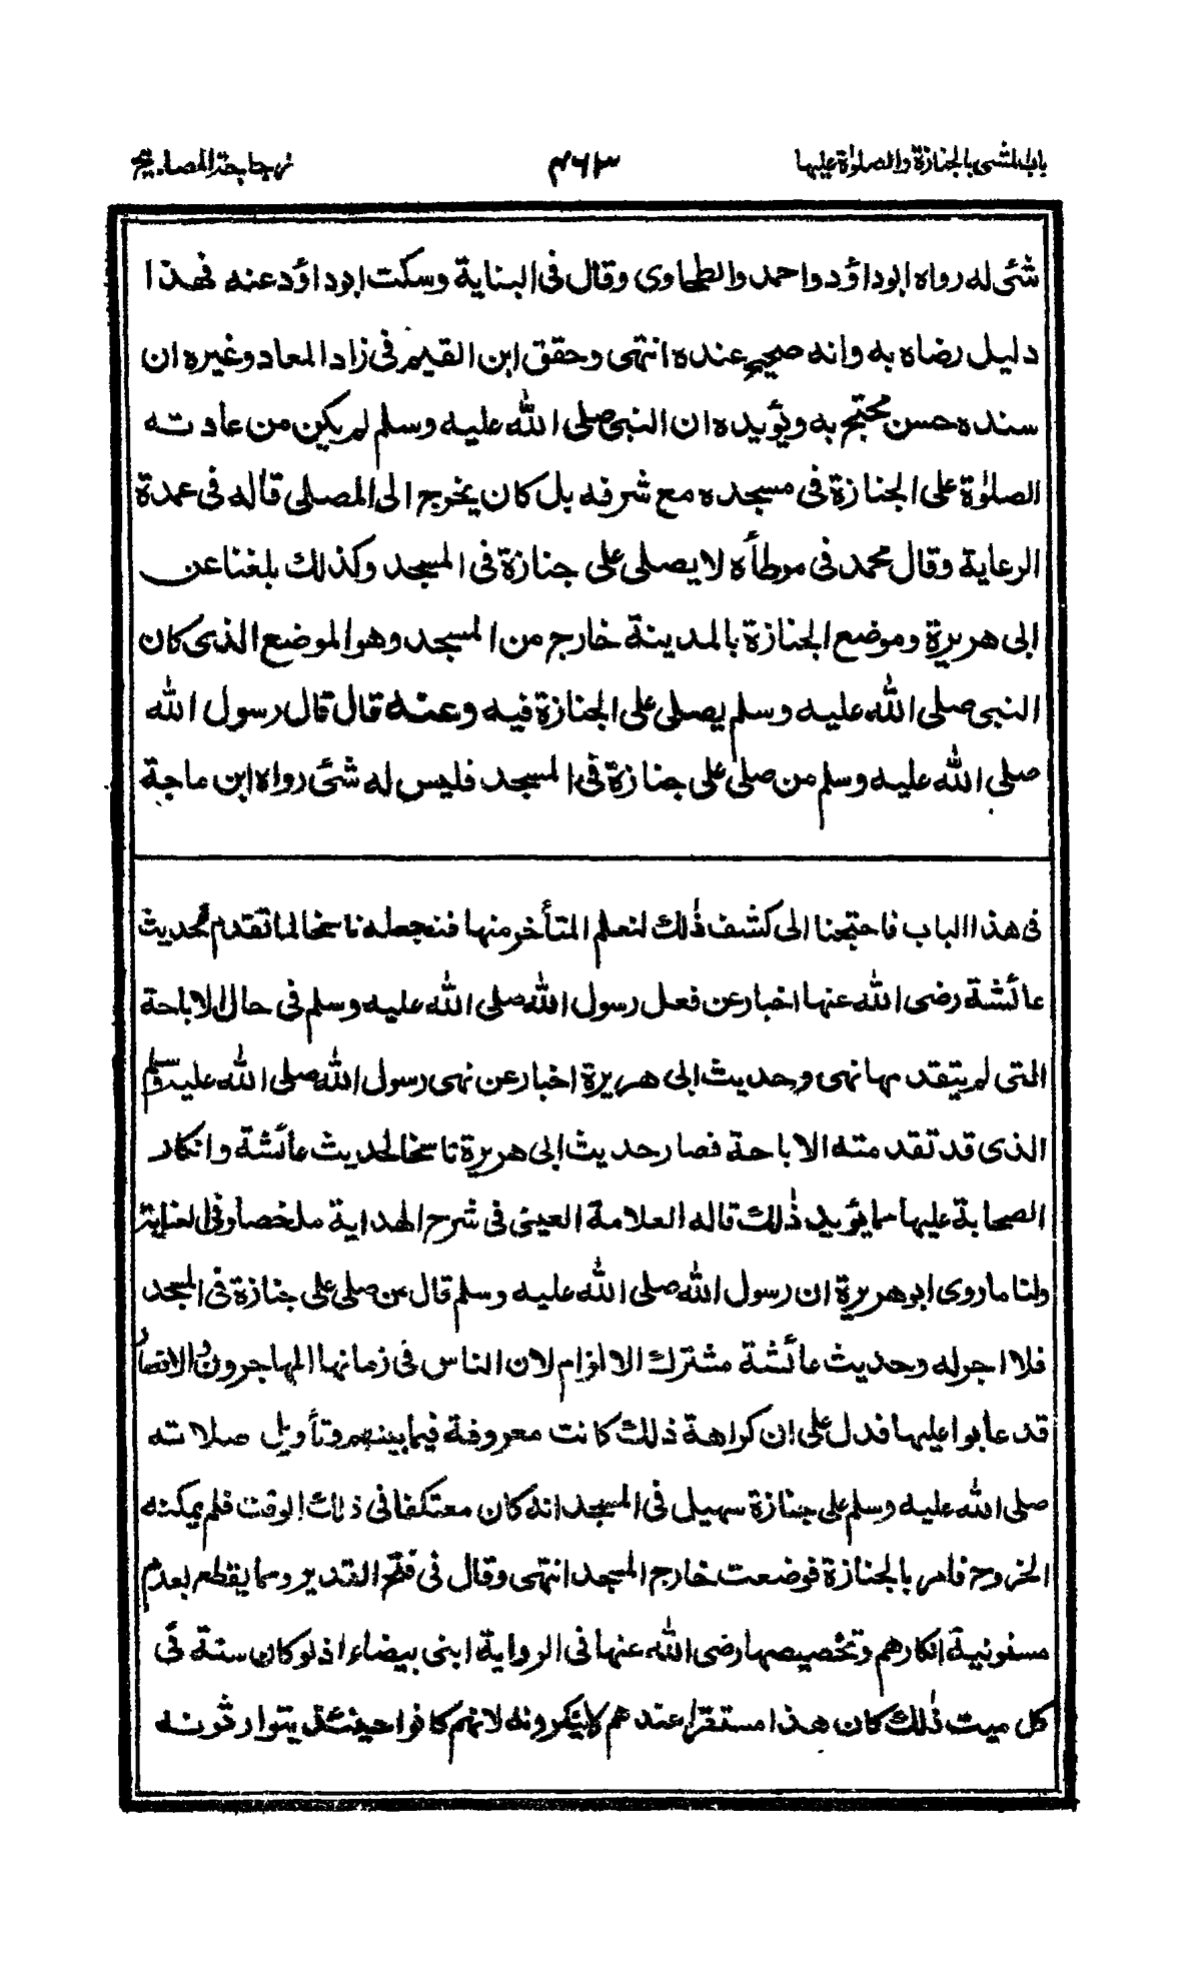 باب المشي بالجنازة والصلوٰة عليها ۴۶۳ زجاجة المصابيح
شئ له رواه ابوداؤد واحمد والطحاوى وقال فى البناية وسكت ابوداؤد عنه فهذا
دليل رضاه به وانه صحيح عنده انتهى وحقق ابن القيم فى زاد المعاد وغيره ان
سنده حسن محتج به ويؤيده ان النبى صلى الله عليه وسلم لم يكن من عادته
الصلوٰة على الجنازة فى مسجده مع شرفه بل كان يخرج الى المصلى قاله فى عمدة
الرعاية وقال محمد فى موطأه لا يصلى على جنازة فى المسجد وكذلك بلغنا عن
ابى هريرة وموضع الجنازة بالمدينة خارج من المسجد وهو الموضع الذى كان
النبى صلى الله عليه وسلم يصلى على الجنازة فيه وعنه قال قال رسول الله
صلى الله عليه وسلم من صلى على جنازة فى المسجد فليس له شئ رواه ابن ماجة
فى هذا الباب فاحتجنا الى كشف ذٰلك لنعلم المتأخر منها فنجعله ناسخا لما تقدم فحديث
عائشة رضى الله عنها اخبار عن فعل رسول الله صلى الله عليه وسلم فى حال الاباحة
التى لم يتقدمها نهى وحديث ابى هريرة اخبار عن نهى رسول الله صلى الله عليه وسلم
الذى قد تقدمته الاباحة فصار حديث ابى هريرة ناسخا لحديث عائشة وانكار
الصحابة عليها مما يؤيد ذٰلك قاله العلامة العينى فى شرح الهداية ملخصا وفى العناية
ولنا ما روى ابو هريرة ان رسول الله صلى الله عليه وسلم قال من صلى على جنازة فى المسجد
فلا اجر له وحديث عائشة مشترك الالزام لان الناس فى زمانها المهاجرون والانصار
قد عابوا عليها فدل على ان كراهة ذلك كانت معروفة فيما بينهم وتأويل صلاته
صلى الله عليه وسلم على جنازة سهيل فى المسجد انه كان معتكفا فى ذلك الوقت فلم يمكنه
الخروج فامر بالجنازة فوضعت خارج المسجد انتهى وقال فى فتح القدير ومما يقطع بعدم
مسنونية انكارهم وتخصيصها رضى الله عنها فى الرواية ابنى بيضاء اذ لو كان سنة فى
كل ميت ذٰلك كان هذا مستقرا عندهم لا ينكرونه لانهم كانوا حينئذ يتوارثونه